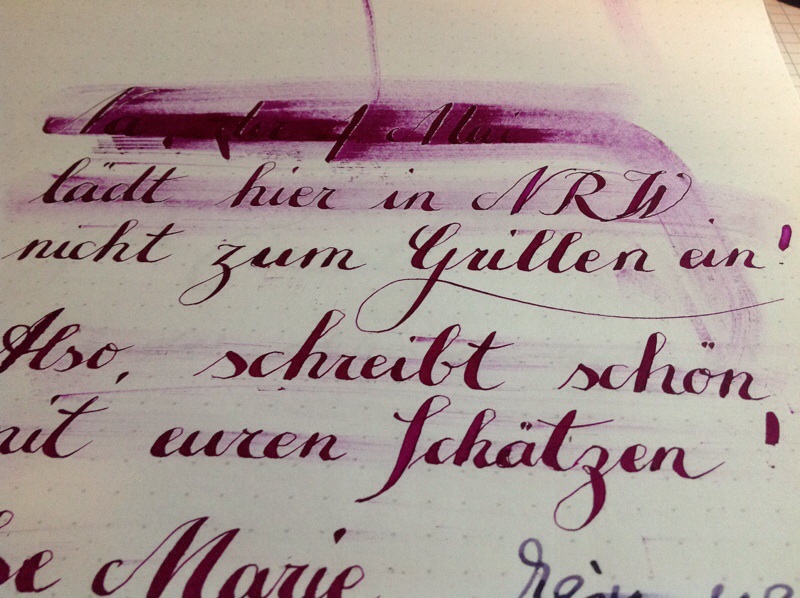 Na, der 1. Mai
lädt hier in NRW
nicht zum Grillen ein!
Also, schreibt schön
mit euren Schätzen!
Marie